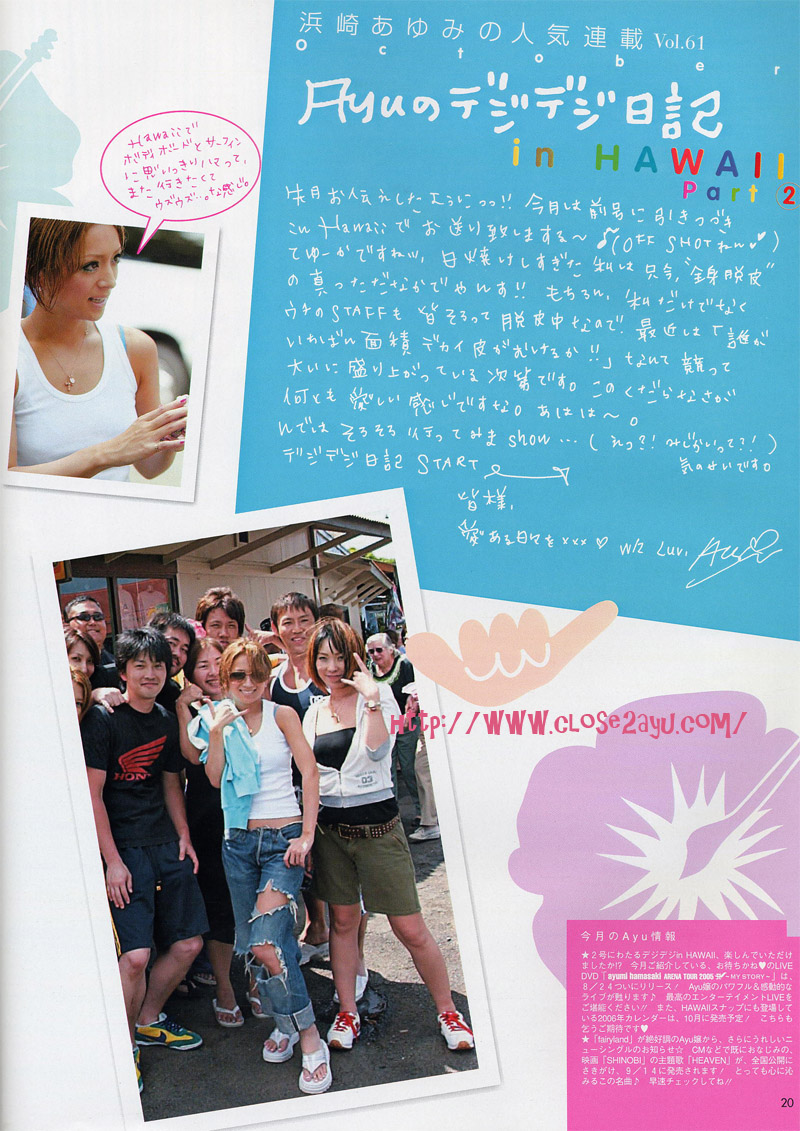 浜崎あゆみの人気連載 Vol.61
october
Ayuのデジデジ日記
in HAWAII
Part 2
Hawaiiで
ボディボードとサーフィン
に思いっきりハマって、
また行きたくて
ウズウズ…。な感じ。
先月お伝えしたように!! 今月は前号に引きつづき
in Hawaiiでお送り致しまする〜♪(OFF SHOTねん♥)
てゆーかですねッ、日焼けしすぎた私は只今、“全身脱皮”
の真っただなかでやんす!! もちろん、私だけでなく
ウチのSTAFFも皆そろって脱皮中なので、最近は「誰が
いちばん面積デカイ皮がむけるか!!」なんて競って
大いに盛り上がっている次第です。このくだらなさが
何とも愛しい感じですな。あはは〜。
んでは そろそろ行ってみま show…(えっ?!みじかいって?!)
デジデジ日記 START 気のせいです。
皆様、
愛ある日々を xxx ♡ wiz Luv,
HONDA
03
http://www.close2ayu.com/
今月のAyu情報
★2号にわたるデジデジin HAWAII、楽しんでいただけ
ましたか!? 今月ご紹介している、お待ちかね♥のLIVE
DVD「ayumi hamasaki ARENA TOUR 2005 A 〜MY STORY〜」は、
8/24ついにリリース! Ayu嬢のパワフル&感動的な
ライブが甦ります♪ 最高のエンターテイメントLIVEを
ご堪能ください!! また、HAWAIIスナップにも登場して
いる2006年カレンダーは、10月に発売予定! こちらも
乞うご期待です♥
★「fairyland」が絶好調のAyu嬢から、さらにうれしいニ
ューシングルのお知らせ☆ CMなどで既におなじみの、
映画「SHINOBI」の主題歌「HEAVEN」が、全国公開に
さきがけ、9/14に発売されます! とっても心に沁
みるこの名曲♪ 早速チェックしてね!!
20